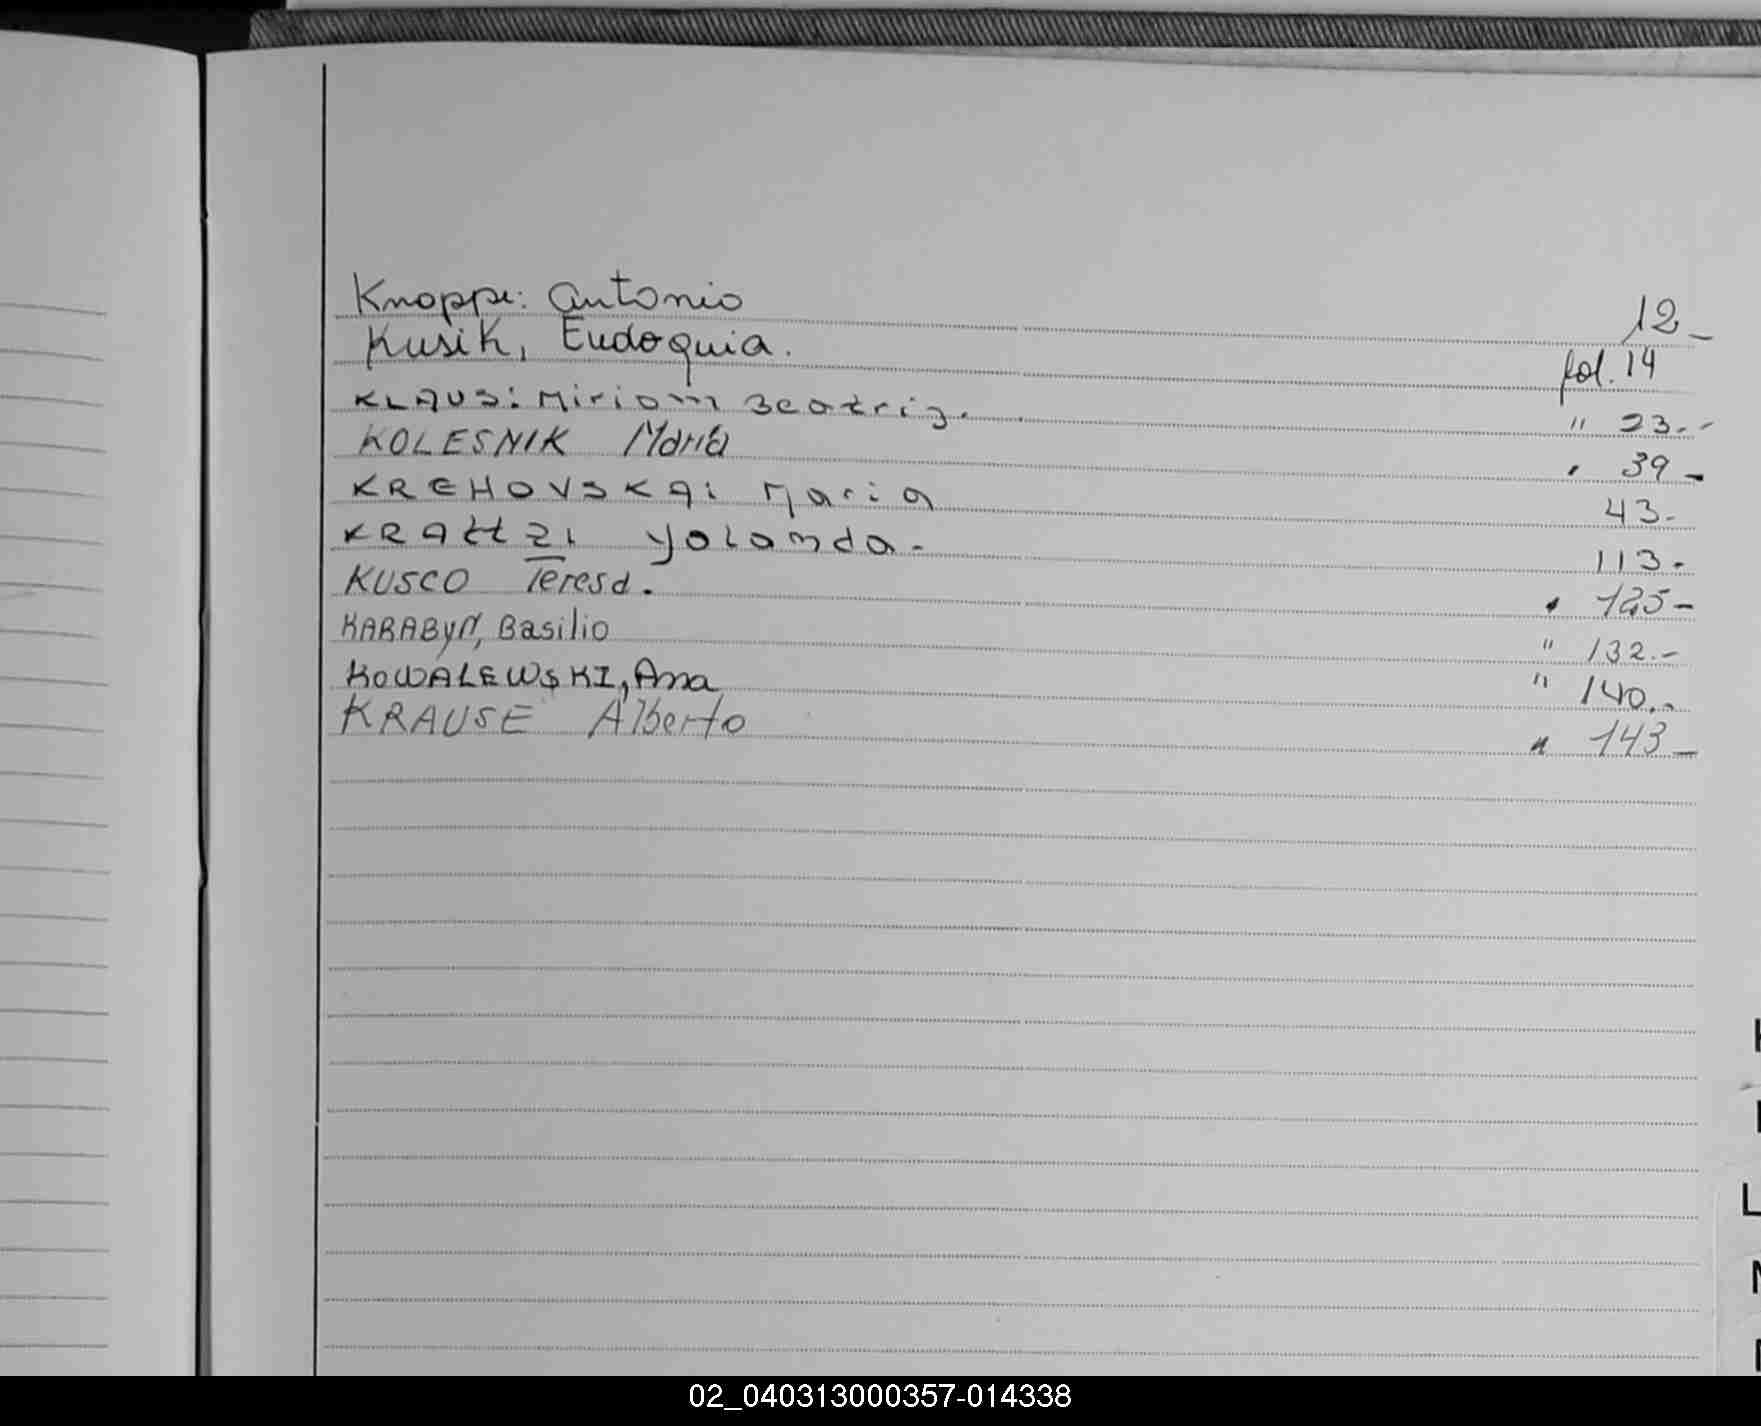 Knoppe: Antonio 12-
Kusik, Eudoquia. fol. 14
KLAUS: Miriam Beatriz. " 23.-
KOLESNIK María " 39-
KREHOVSKAI Maria 43-
KRATTZI Yolanda. 113-
KUSCO Teresa. " 125-
KARABYN, Basilio " 132.-
KOWALEWSKI, Ana " 140.-
KRAUSE Alberto " 143-
L
02_040313000357-014338